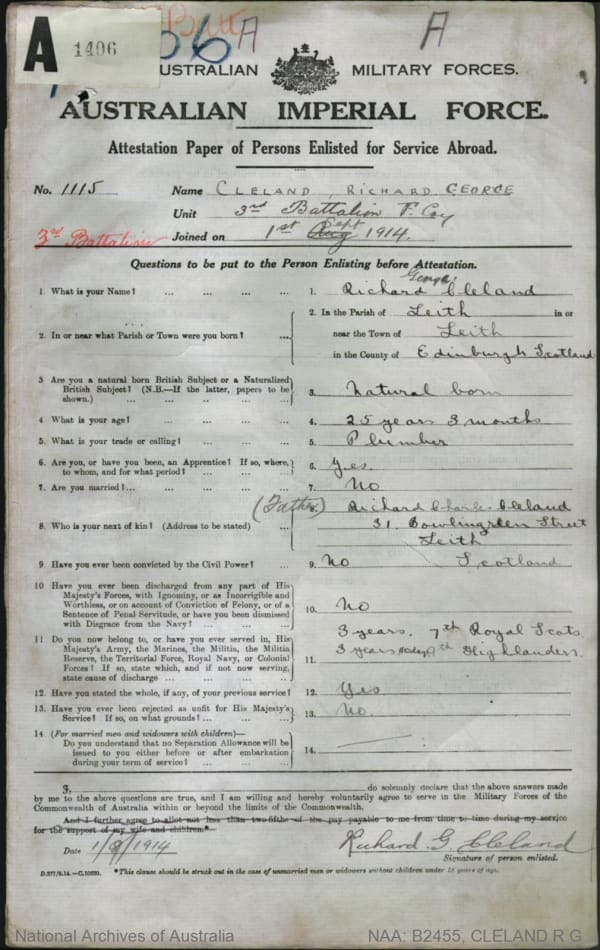 A
1406
A
A
AUSTRALIAN MILITARY FORCES.
AUSTRALIAN IMPERIAL FORCE.
Attestation Paper of Persons Enlisted for Service Abroad.
No. 1115 Name CLELAND, RICHARD GEORGE
Unit 3rd Battalion F. Coy
3rd Battalion Joined on 1st Aug Sept 1914.
Questions to be put to the Person Enlisting before Attestation.
1. What is your Name? ... ... ... ... 1. Richard George Cleland
2. In or near what Parish or Town were you born? ... 2. In the Parish of Leith in or
near the Town of Leith
in the County of Edinburgh Scotland
3 Are you a natural born British Subject or a Naturalized
British Subject? (N.B.—If the latter, papers to be
shown.) ... ... ... ... ... 3. Natural born
4. What is your age? ... ... ... ... 4. 25 years 3 months
5. What is your trade or calling? ... ... ... 5. Plumber
6. Are you, or have you been, an Apprentice? If so, where,
to whom, and for what period? ... ... ... 6. Yes
7. Are you married? ... ... ... ... ... 7. No
8. Who is your next of kin? (Address to be stated) ... (Father) 8. Richard Charles Cleland
31. Bowlingreen Street
Leith
Scotland
9. Have you ever been convicted by the Civil Power? ... 9. No
10 Have you ever been discharged from any part of His
Majesty's Forces, with Ignominy, or as Incorrigible and
Worthless, or on account of Conviction of Felony, or of a
Sentence of Penal Servitude, or have you been dismissed
with Disgrace from the Navy? ... ... ... 10. No
11 Do you now belong to, or have you ever served in, His
Majesty's Army, the Marines, the Militia, the Militia
Reserve, the Territorial Force, Royal Navy, or Colonial
Forces? If so, state which, and if not now serving,
state cause of discharge ... ... ... ... 11. 3 years. 7th Royal Scots
3 years 9th Highlanders.
12. Have you stated the whole, if any, of your previous service? 12. Yes
13. Have you ever been rejected as unfit for His Majesty's
Service? If so, on what grounds? ... ... ... 13. No.
14. (For married men and widowers with children)—
Do you understand that no Separation Allowance will be
issued to you either before or after embarkation
during your term of service? ... ... ... 14.
I, do solemnly declare that the above answers made
by me to the above questions are true, and I am willing and hereby voluntarily agree to serve in the Military Forces of the
Commonwealth of Australia within or beyond the limits of the Commonwealth.
And I further agree to allot not less than two-fifths of the pay payable to me from time to time during my service
for the support of my wife and children.*
Date 1/9/1914 Richard G. Cleland
Signature of person enlisted.
D.277/6.14.—C.10320. *This clause should be struck out in the case of unmarried men or widowers without children under 18 years of age.
National Archives of Australia NAA: B2455, CLELAND R G